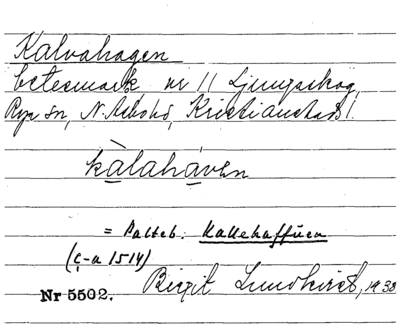 Kalvahagen
betesmark, nr 11 Ljungaskog,
Rya sn, N. Åsbohd, Kristianstads l.
kàlahávɛn
= Palteb. Kallehaffuen
(c-a 1514)
Birgit Lundkvist, 1938
Nr 5502.